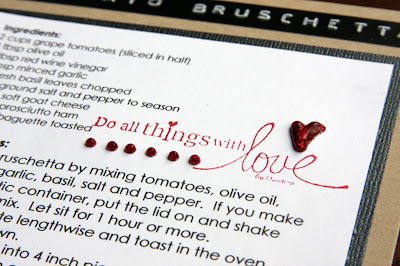 BRUSCHETTA
Ingredients:
2 cups grape tomatoes (sliced in half)
tbsp olive oil
tbsp red wine vinegar
tsp minced garlic
fresh basil leaves chopped
ground salt and pepper to season
soft goat cheese
prosciutto ham
baguette toasted
Do all things with love
s:
bruschetta by mixing tomatoes, olive oil,
garlic, basil, salt and pepper. If you make
tic container, put the lid on and shake
mix. Let sit for 1 hour or more.
te lengthwise and toast in the oven
wn.
into 4 inch